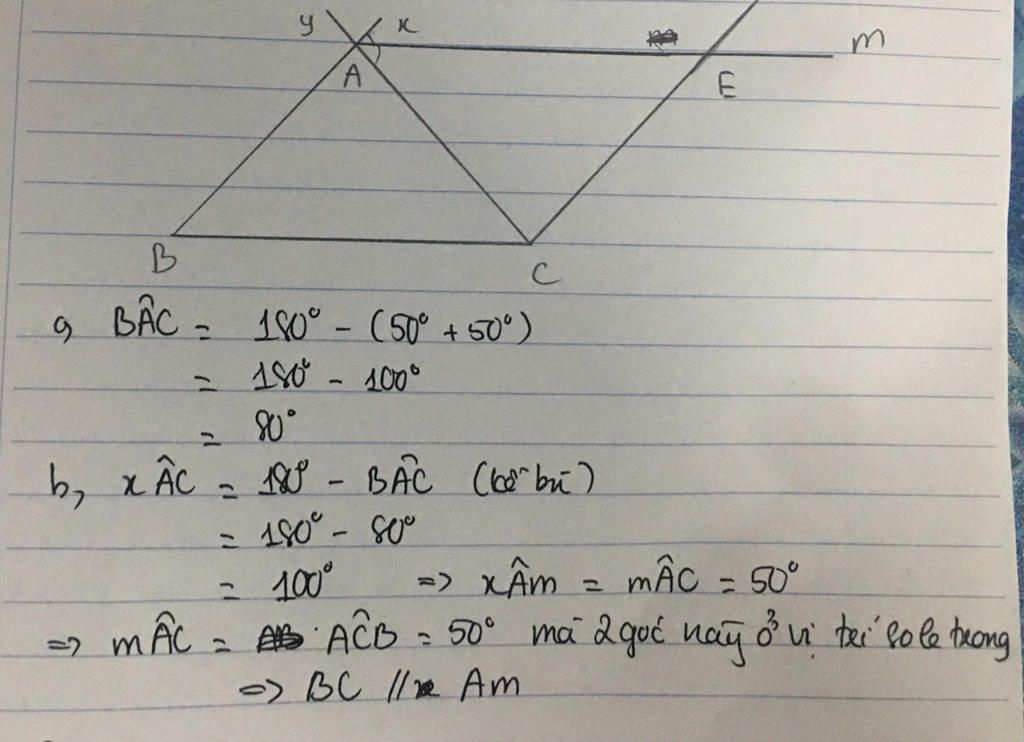 y x m
A E
B C
a, BÂC = 180° - (50° + 50°)
= 180° - 100°
= 80°
b, xÂC = 180° - BÂC (kề bù)
= 180° - 80°
= 100° => xÂm = mÂC = 50°
=> mÂC = AĈB = 50° mà 2 góc này ở vị trí so le trong
=> BC // Am